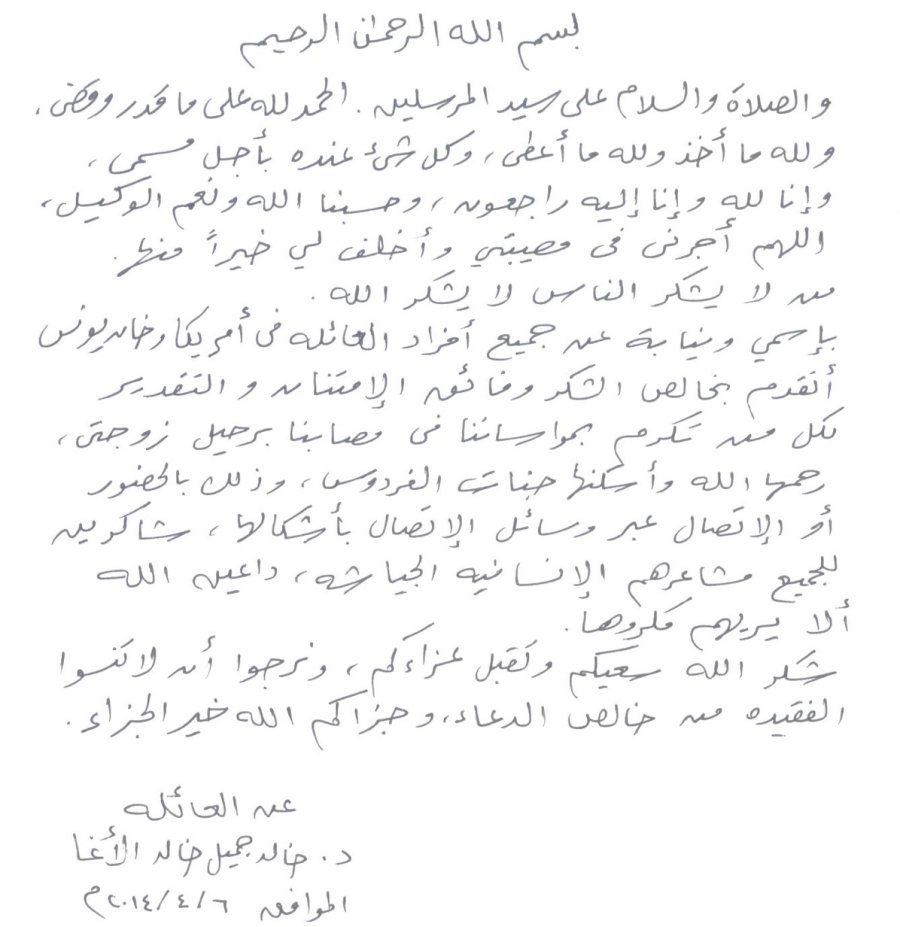 بسم الله الرحمن الرحيم
والصلاة والسلام على سيد المرسلين. الحمد لله على ما قدر وقضى،
ولله ما أخذ ولله ما أعطى، وكل شئ عنده بأجل مسمى،
وإنا لله وإنا إليه راجعون، وحسبنا الله ونعم الوكيل،
اللهم أجرنى فى مصيبتي وأخلف لي خيراً منها.
من لا يشكر الناس لا يشكر الله.
بإسمي ونيابة عن جميع أفراد العائله فى أمريكا وخان يونس
أتقدم بخالص الشكر وفائق الإمتنان والتقدير
لكل من تكرم بمواساتنا فى مصابنا برحيل زوجتى،
رحمها الله وأسكنها جنات الفردوس، وذلك بالحضور
أو الإتصال عبر وسائل الإتصال بأشكالها، شاكرين
للجميع مشاعرهم الإنسانيه الجياشه، داعين الله
ألا يريهم مكروها.
شكر الله سعيكم وتقبل عزاءكم، ونرجوا أن لا تنسوا
الفقيده من خالص الدعاء، وجزاكم الله خير الجزاء.
عن العائله
د. خالد جميل خالد الأغا
الموافق ٢٠١٤/٤/٦م